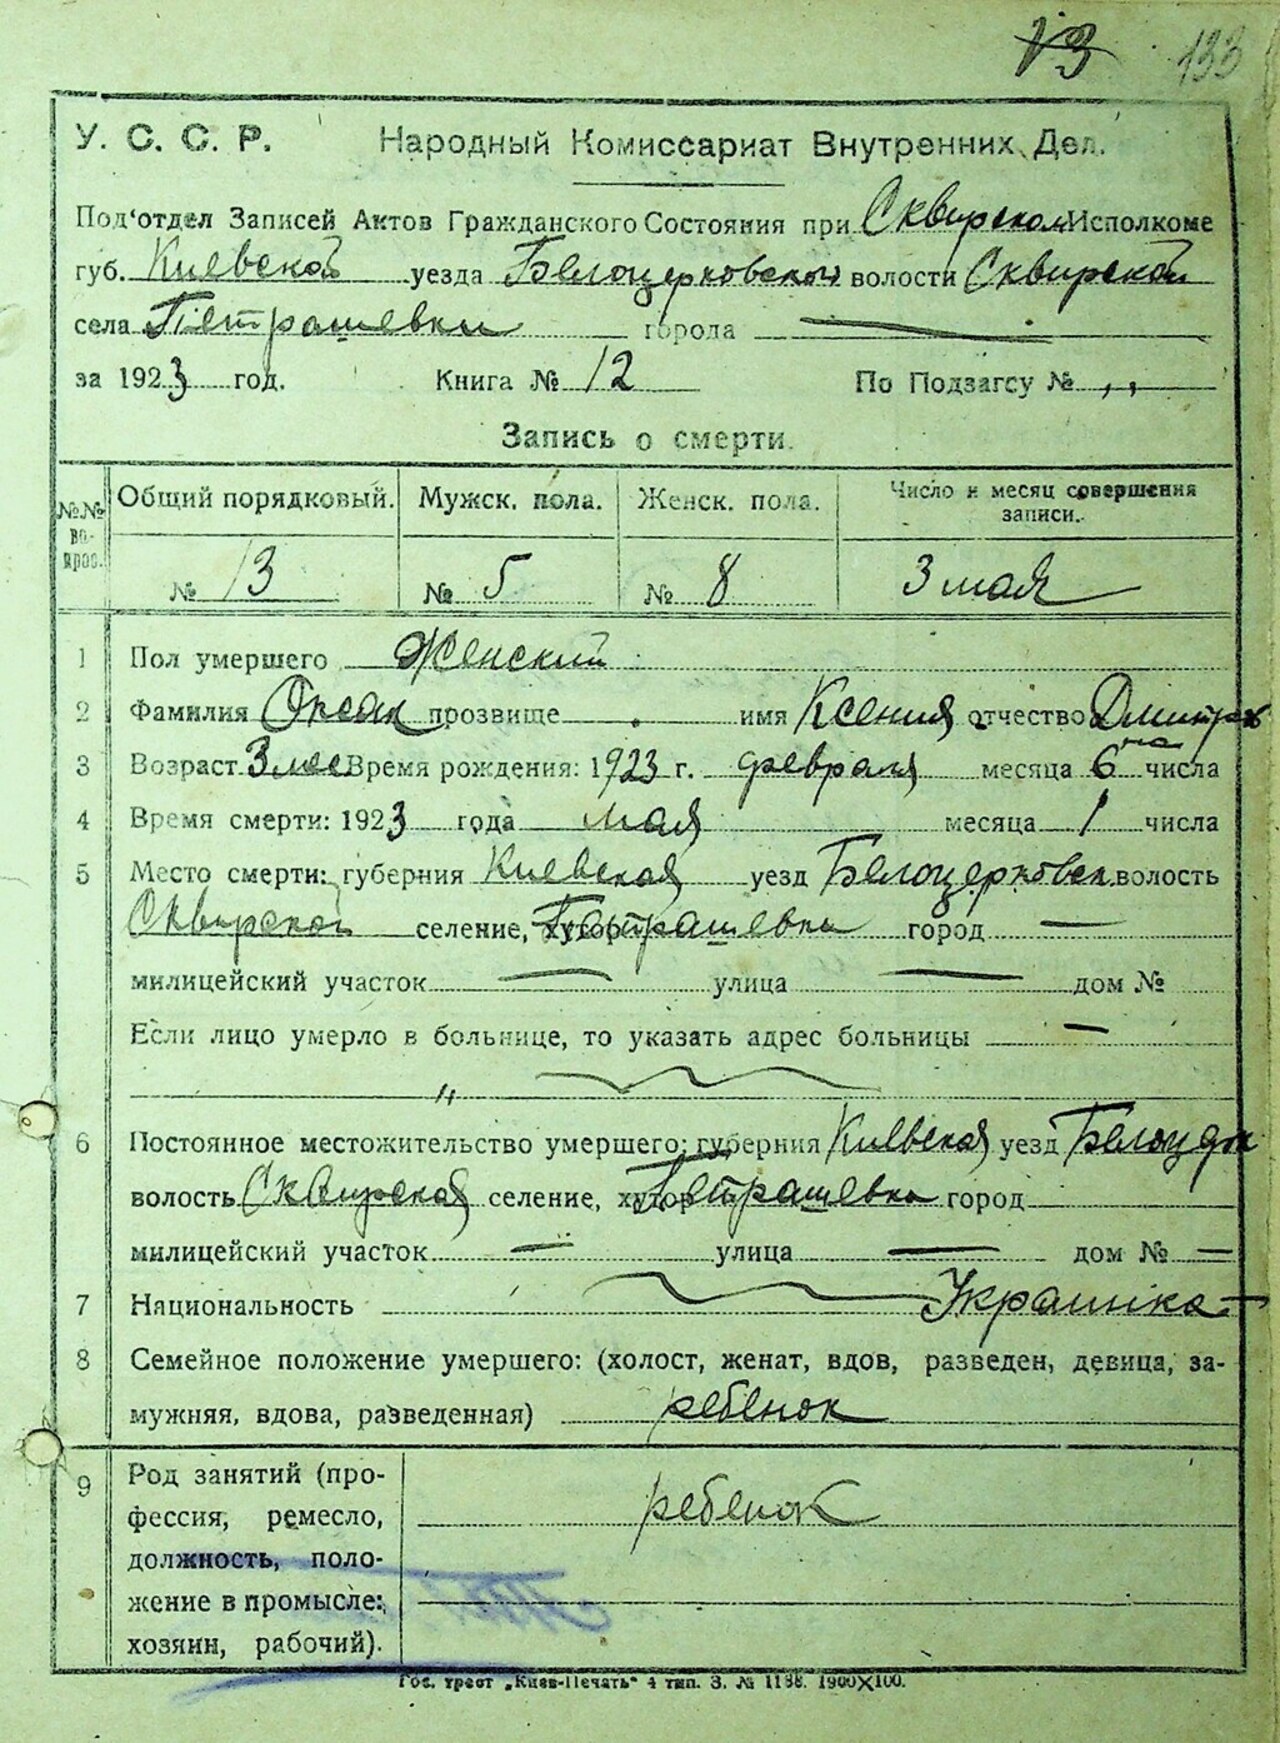 13 133
У. С. С. Р. Народный Комиссариат Внутренних Дел.
Под‘отдел Записей Актов Гражданского Состояния при Сквирском Исполкоме
губ. Киевской уезда Белоцерковского волости Сквирской
села Петрашевки города —
за 1923 год. Книга № 12 По Подзагсу № „
Запись о смерти.
№№ во- прос. Общий порядковый. Мужск. пола. Женск. пола. Число и месяц совершения записи.
№ 13 № 5 № 8 3 мая
1 Пол умершего Женский
2 Фамилия прозвище имя Ксения отчество Дмитров
на
3 Возраст 3 мес Время рождения: 1923 г. февраля месяца 6 числа
4 Время смерти: 1923 года мая месяца 1 числа
5 Место смерти: губерния Киевская уезд Белоцерковск. волость
Сквирской селение, хутор Петрашевка город —
милицейский участок — улица — дом №
Если лицо умерло в больнице, то указать адрес больницы —
„
6 Постоянное местожительство умершего: губерния Киевская уезд
волость Сквирская селение, хутор Петрашевка город
милицейский участок — улица — дом № —
7 Национальность Украинка
8 Семейное положение умершего: (холост, женат, вдов, разведен, девица, за-
мужняя, вдова, разведенная) ребенок
9 Род занятий (про-
фессия, ремесло, ребенок
должность, поло-
жение в промысле:
хозяин, рабочий).
Гос. трест „Киев-Печать“ 4 тип. З. № 1188. 1900X100.